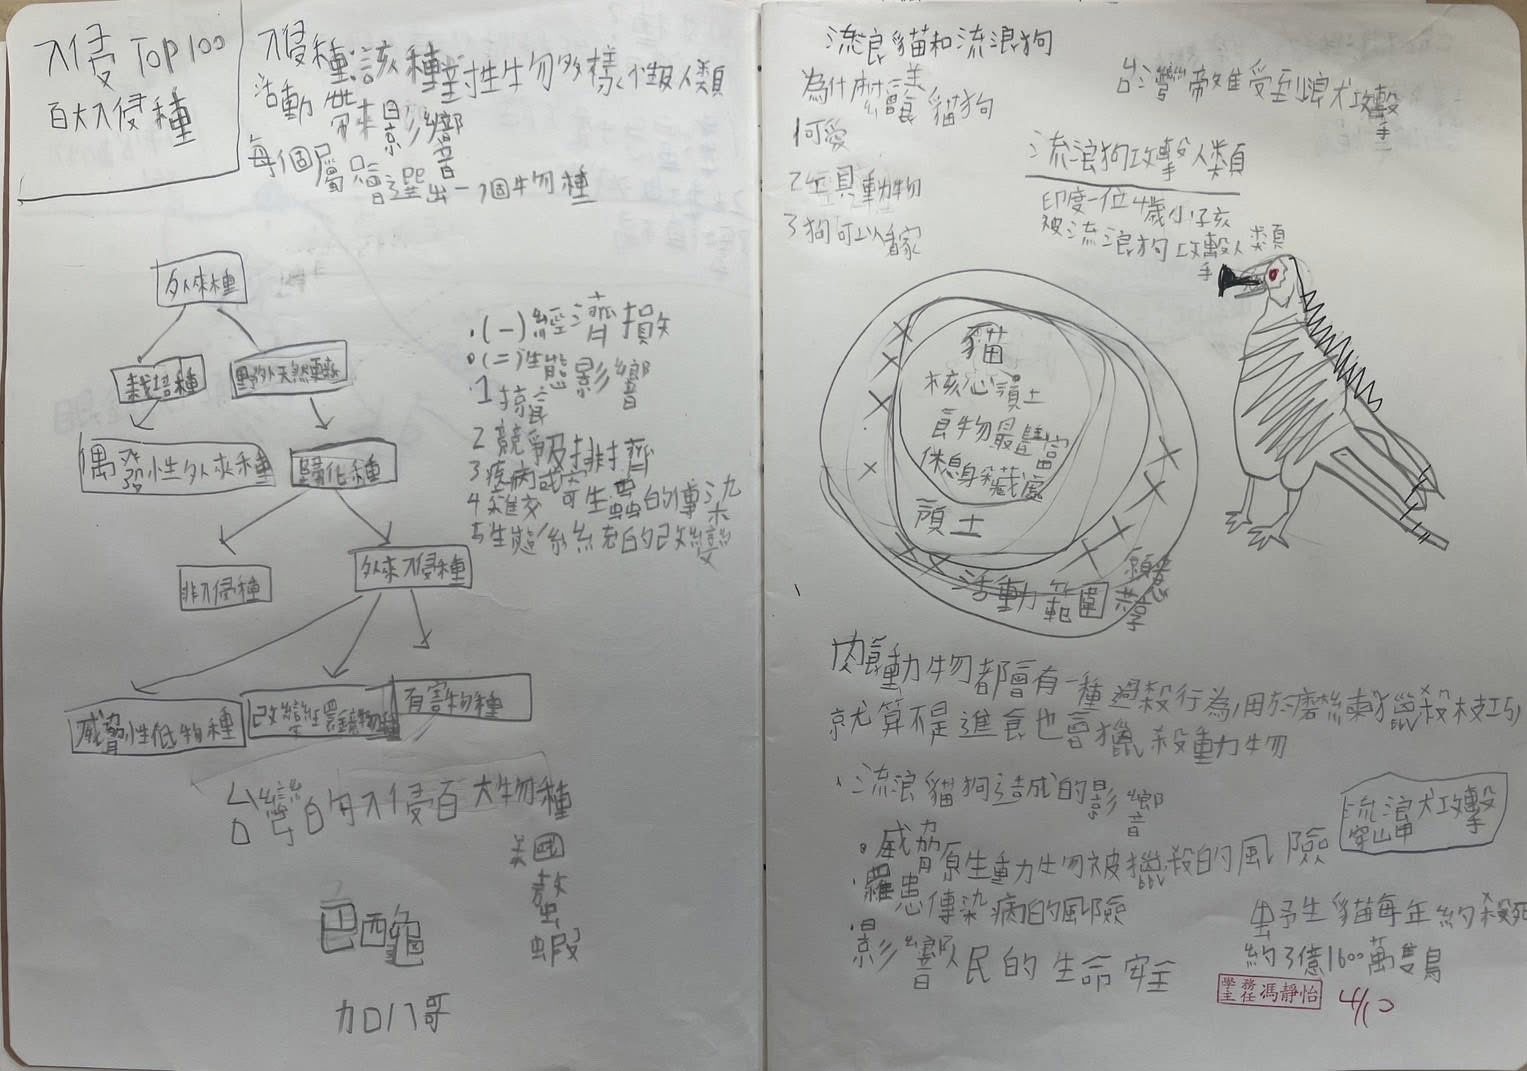 入侵 Top 100
百大入侵種
入侵種:該種對性生物多樣
活動帶來影響
每個屬只會選出一個物種
外來種
栽培種
野外天然
偶發性外來種
歸化種
非入侵種
外來入侵種
威脅性低物種
有害物種
·(一)經濟損失
·(二)性態影響
1 掠食
2 競爭及排擠
3 疾病或寄生蟲的傳染
4 雜交
5 生態系統的改變
台灣的入侵百大物種
美國螯蝦
巴西龜
加八哥
流浪貓和流浪狗
為什麼養貓狗
1 可愛
2 工具動物
3 狗可以看家
台灣帝雉受到浪犬攻擊
流浪狗攻擊人類
印度一位4歲小孩
被流浪狗攻擊人類
貓
核心領土
食物最豐富
休息身藏處
領土
活動範圍
願意共享
肉食動物都會有一種過殺行為,用於磨練獵殺技巧,
就算不是進食也會獵殺動物
·流浪貓狗造成的影響
·威脅原生動生物被獵殺的風險
·罹患傳染病的風險
·影響人民的生命安全
流浪犬攻擊
穿山甲
野生貓每年約殺死
約3億1600萬隻鳥
學務主任 馮靜怡
4/10